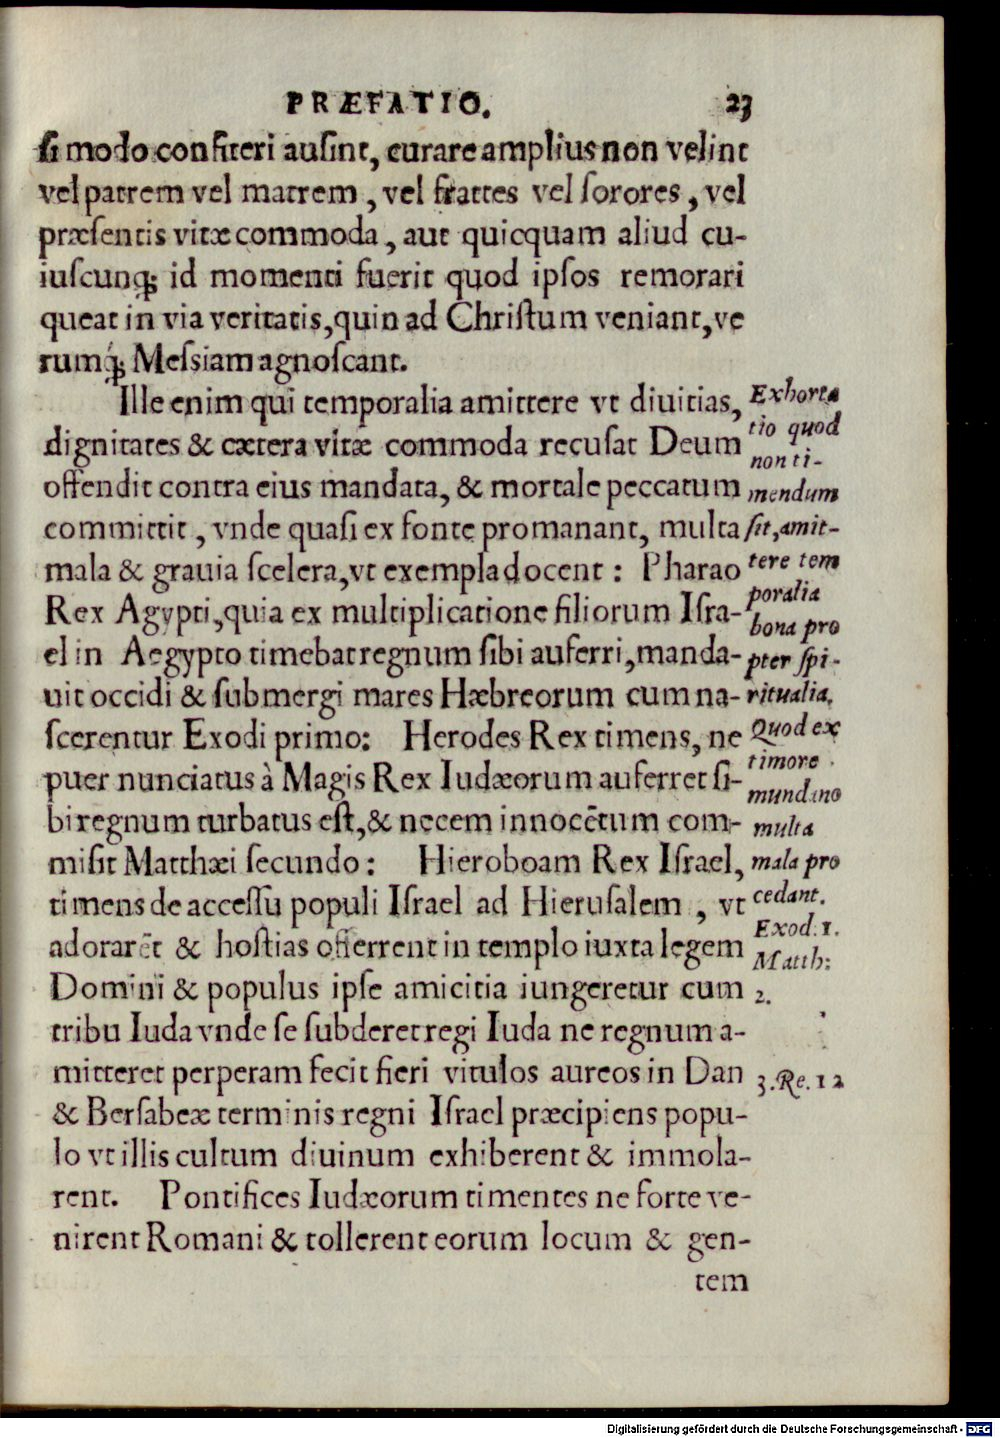 PRÆFATIO. 23
ſi modo confiteri auſint, curare amplius non velint
vel patrem vel matrem, vel fratres vel ſorores, vel
præſentis vitæ commoda, aut quicquam aliud cu-
iuſcunq; id momenti fuerit quod ipſos remorari
queat in via veritatis, quin ad Chriſtum veniant, ve
rumq́; Meſsiam agnoſcant.
Ille enim qui temporalia amittere vt diuitias,
dignitates & cætera vitæ commoda recuſat Deum
offendit contra eius mandata, & mortale peccatum
committit, vnde quaſi ex fonte promanant, multa
mala & grauia ſcelera, vt exempla docent: Pharao
Rex Agypti, quia ex multiplicatione filiorum Iſra-
el in Aegypto timebat regnum ſibi auferri, manda-
uit occidi & ſubmergi mares Hæbreorum cum na-
ſcerentur Exodi primo: Herodes Rex timens, ne
puer nunciatus à Magis Rex Iudæorum auferret ſi-
bi regnum turbatus eſt, & necem innocētum com-
miſit Matthæi ſecundo: Hieroboam Rex Iſrael,
timens de acceſſu populi Iſrael ad Hieruſalem, vt
adorarēt & hoſtias offerrent in templo iuxta legem
Domini & populus ipſe amicitia iungeretur cum
tribu Iuda vnde ſe ſubderet regi Iuda ne regnum a-
mitteret perperam fecit fieri vitulos aureos in Dan
& Berſabeæ terminis regni Iſrael præcipiens popu-
lo vt illis cultum diuinum exhiberent & immola-
rent. Pontifices Iudæorum timentes ne forte ve-
nirent Romani & tollerent eorum locum & gen-
tem
Exhorta
tio quod
non ti-
mendum
ſit, amit-
tere tem
poralia
bona pro
pter ſpi-
ritualia.
Quod ex
timore
mundano
multa
mala pro
cedant.
Exod. 1.
Matth:
2.
3. Re. 12
Digitalisierung gefördert durch die Deutsche Forschungsgemeinschaft - DFG